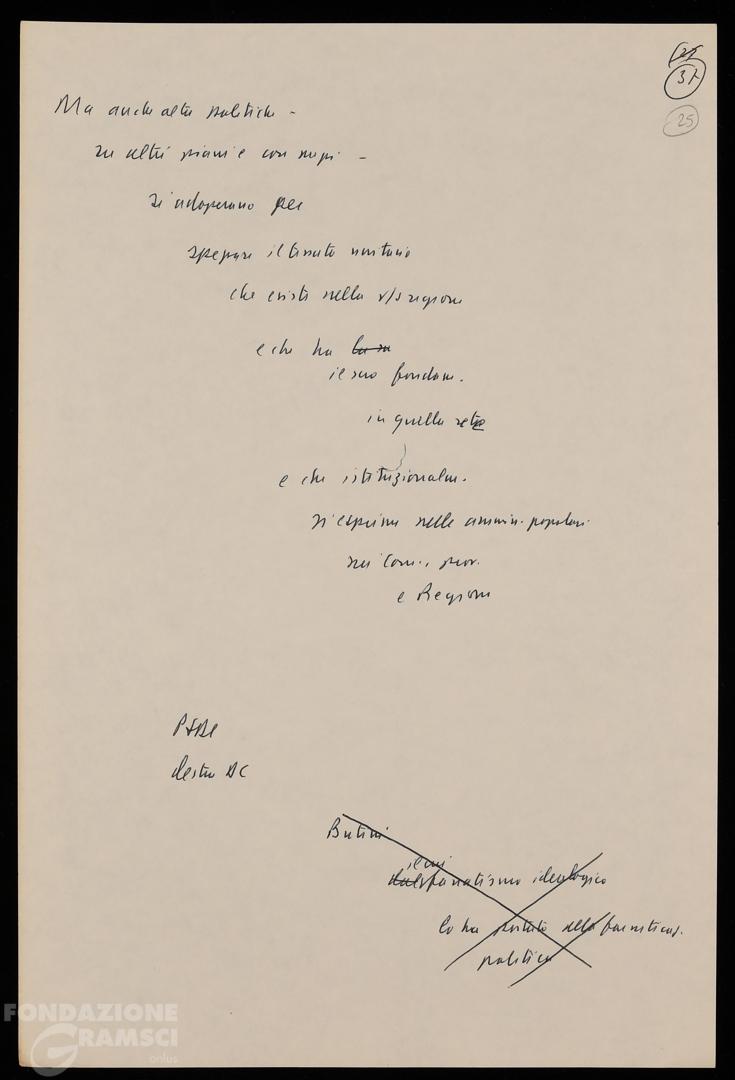 31
25
Ma anche altre politiche -
su altri piani e con mezzi -
si adoperano per
spezzare il tessuto unitario
che esiste nella v/s regione
e che ha la su
il suo fondam.
in quella rete
e che istituzionalm.
si esprime nelle ammin. popolari
nei Com., prov.
e Regione
destra DC
Butini
il cui
dal fanatismo ideologico
lo ha portato alla
politica
FONDAZIONE
GRAMSCI
onlus